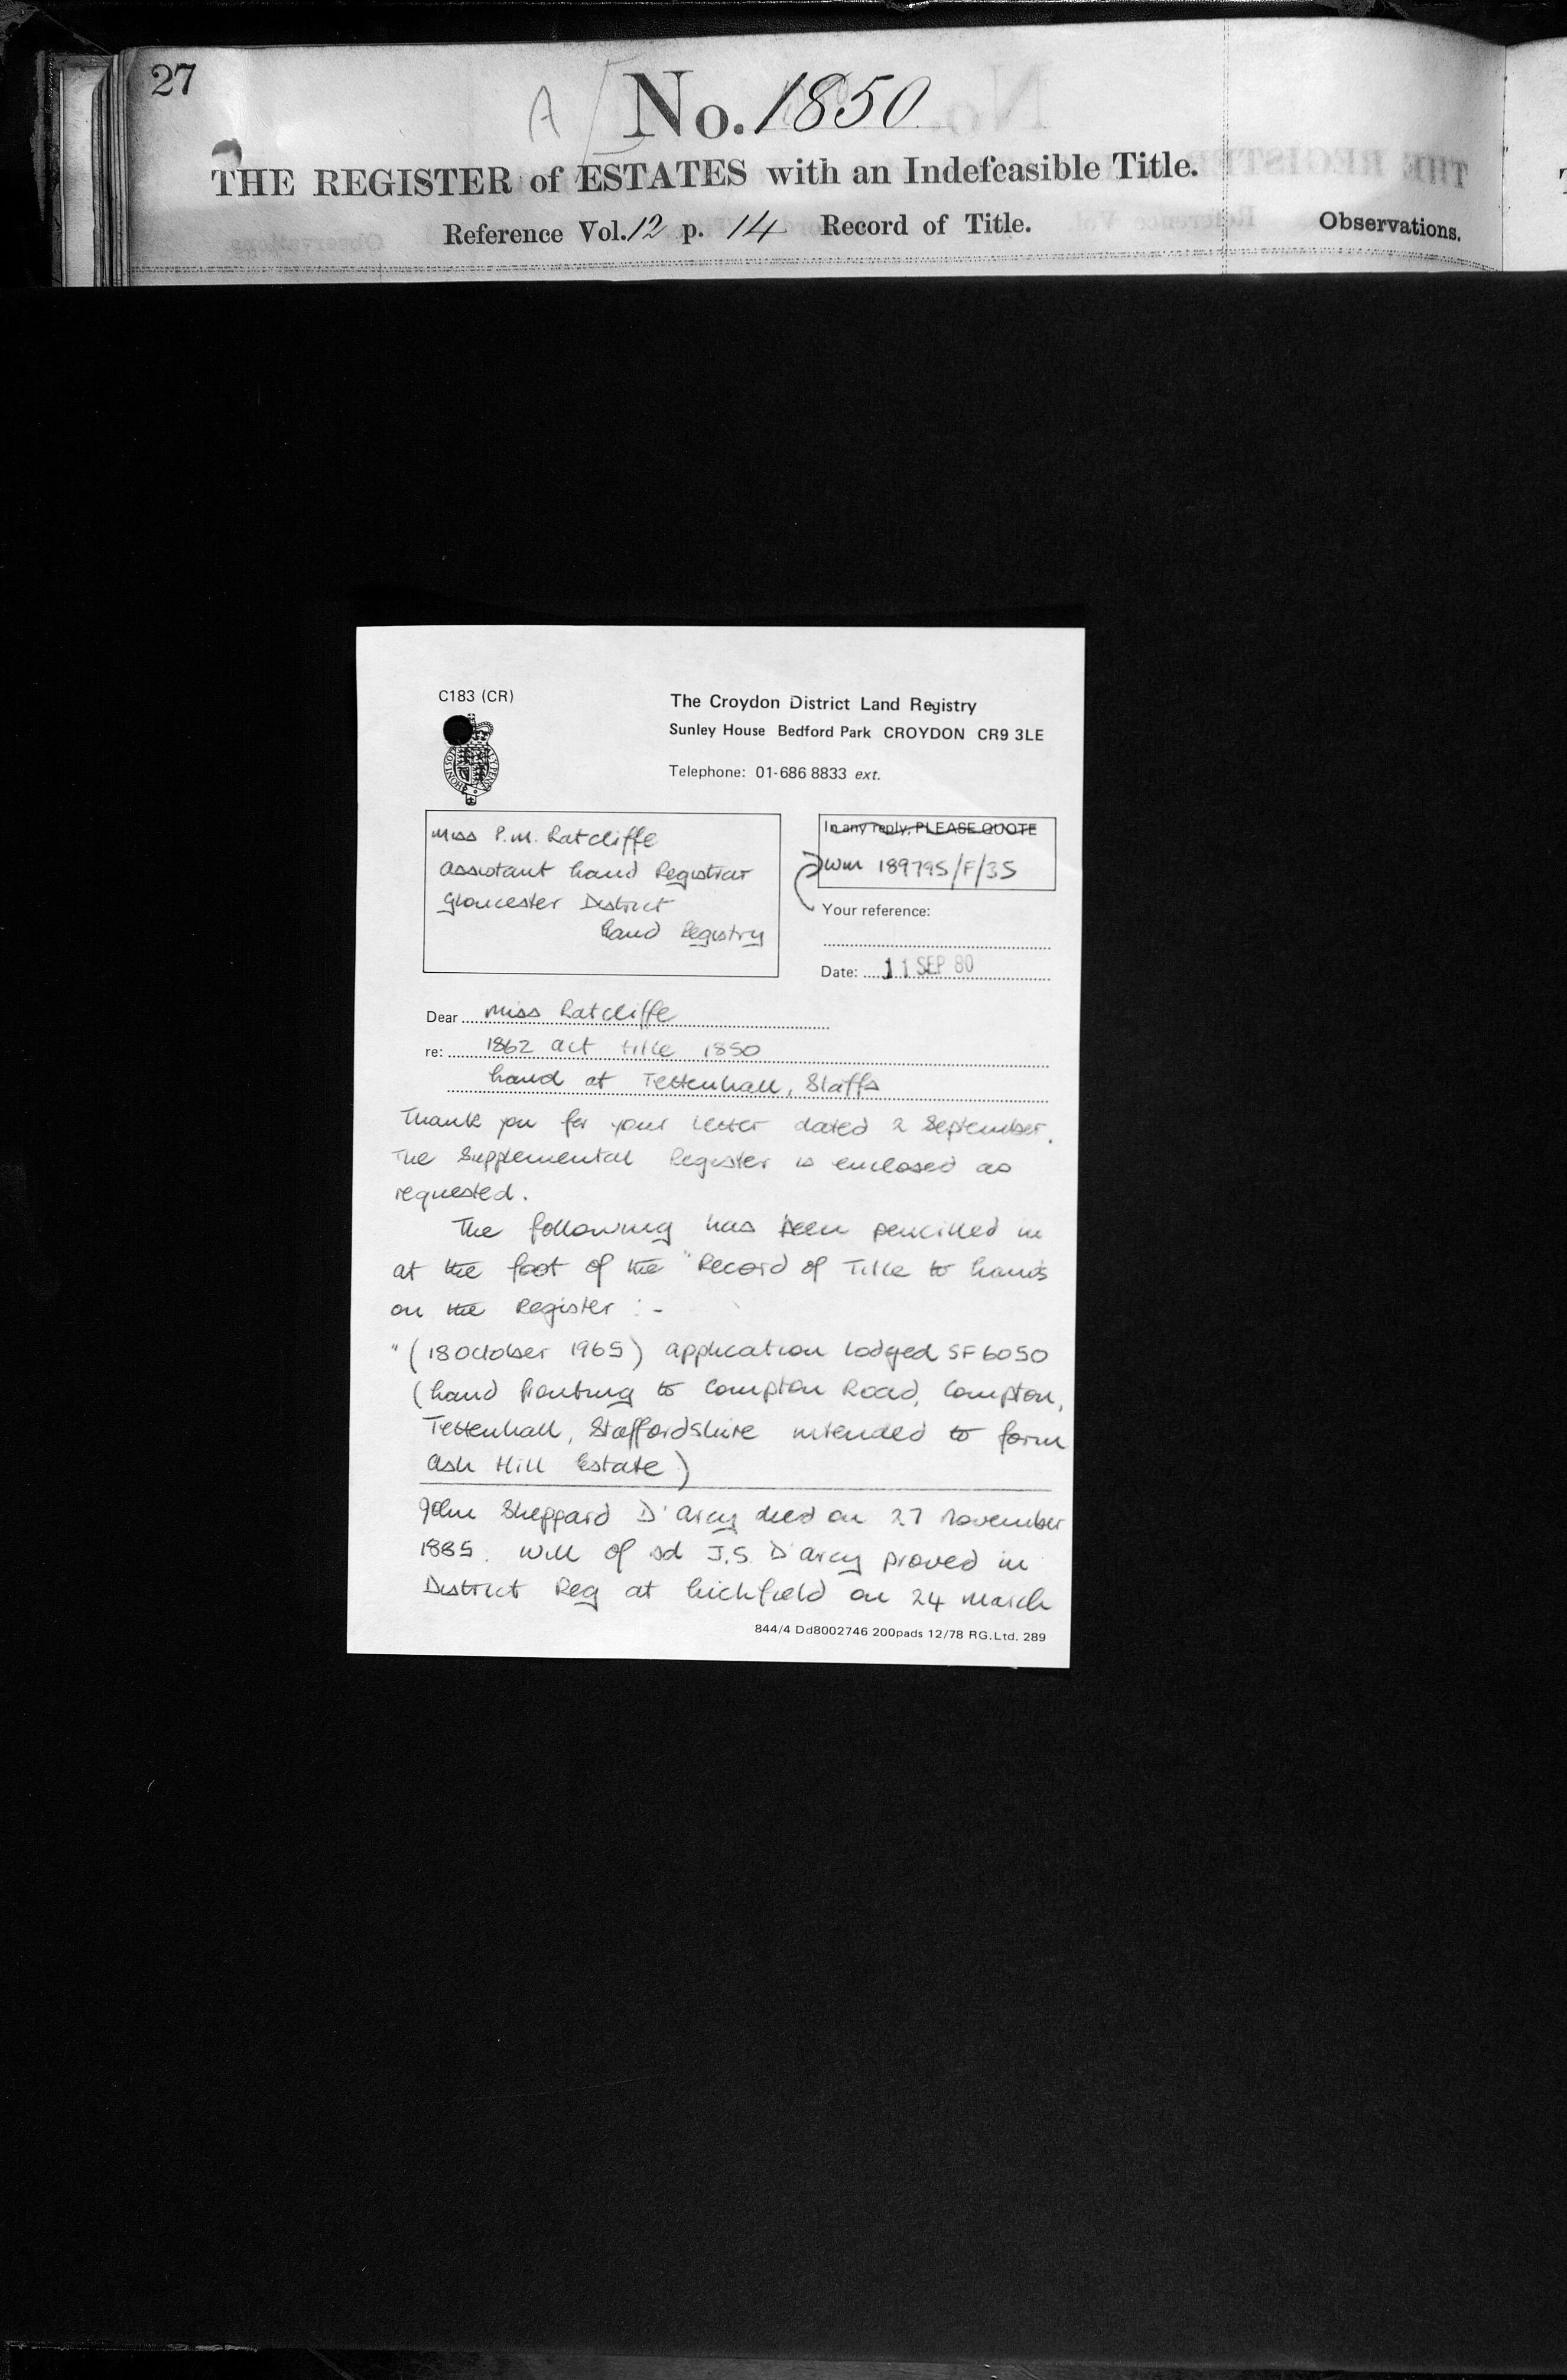 27
A
No. 1850
THE REGISTER of ESTATES with an Indefeasible Title.
Reference Vol. 12 p. 14 Record of Title.
Observations.
C183 (CR)
The Croydon District Land Registry
Sunley House Bedford Park CROYDON CR9 3LE
Telephone: 01-686 8833 ext.
Miss P.M. Ratcliffe
Assistant Land Registrar
Gloucester District
Land Registry
In any reply, PLEASE QUOTE
WM 189795/F/35
Your reference:
Date: 11 SEP 80
Dear Miss Ratcliffe
re: 1862 Act title 1850
Land at Tettenhall, Staffs
Thank you for your letter dated 2 September.
The Supplemental Register is enclosed as
requested.
The following has been pencilled in
at the foot of the "Record of Title to Lands
on the Register :-
"(18 October 1965) application lodged SF6050
(Land fronting to Compton Road, Compton,
Tettenhall, Staffordshire intended to form
Ash Hill Estate)
John Sheppard D'Arcy died on 27 November
1885. Will of sd J.S. D'Arcy proved in
District Reg at Lichfield on 24 March
844/4 Dd8002746 200pads 12/78 RG.Ltd. 289